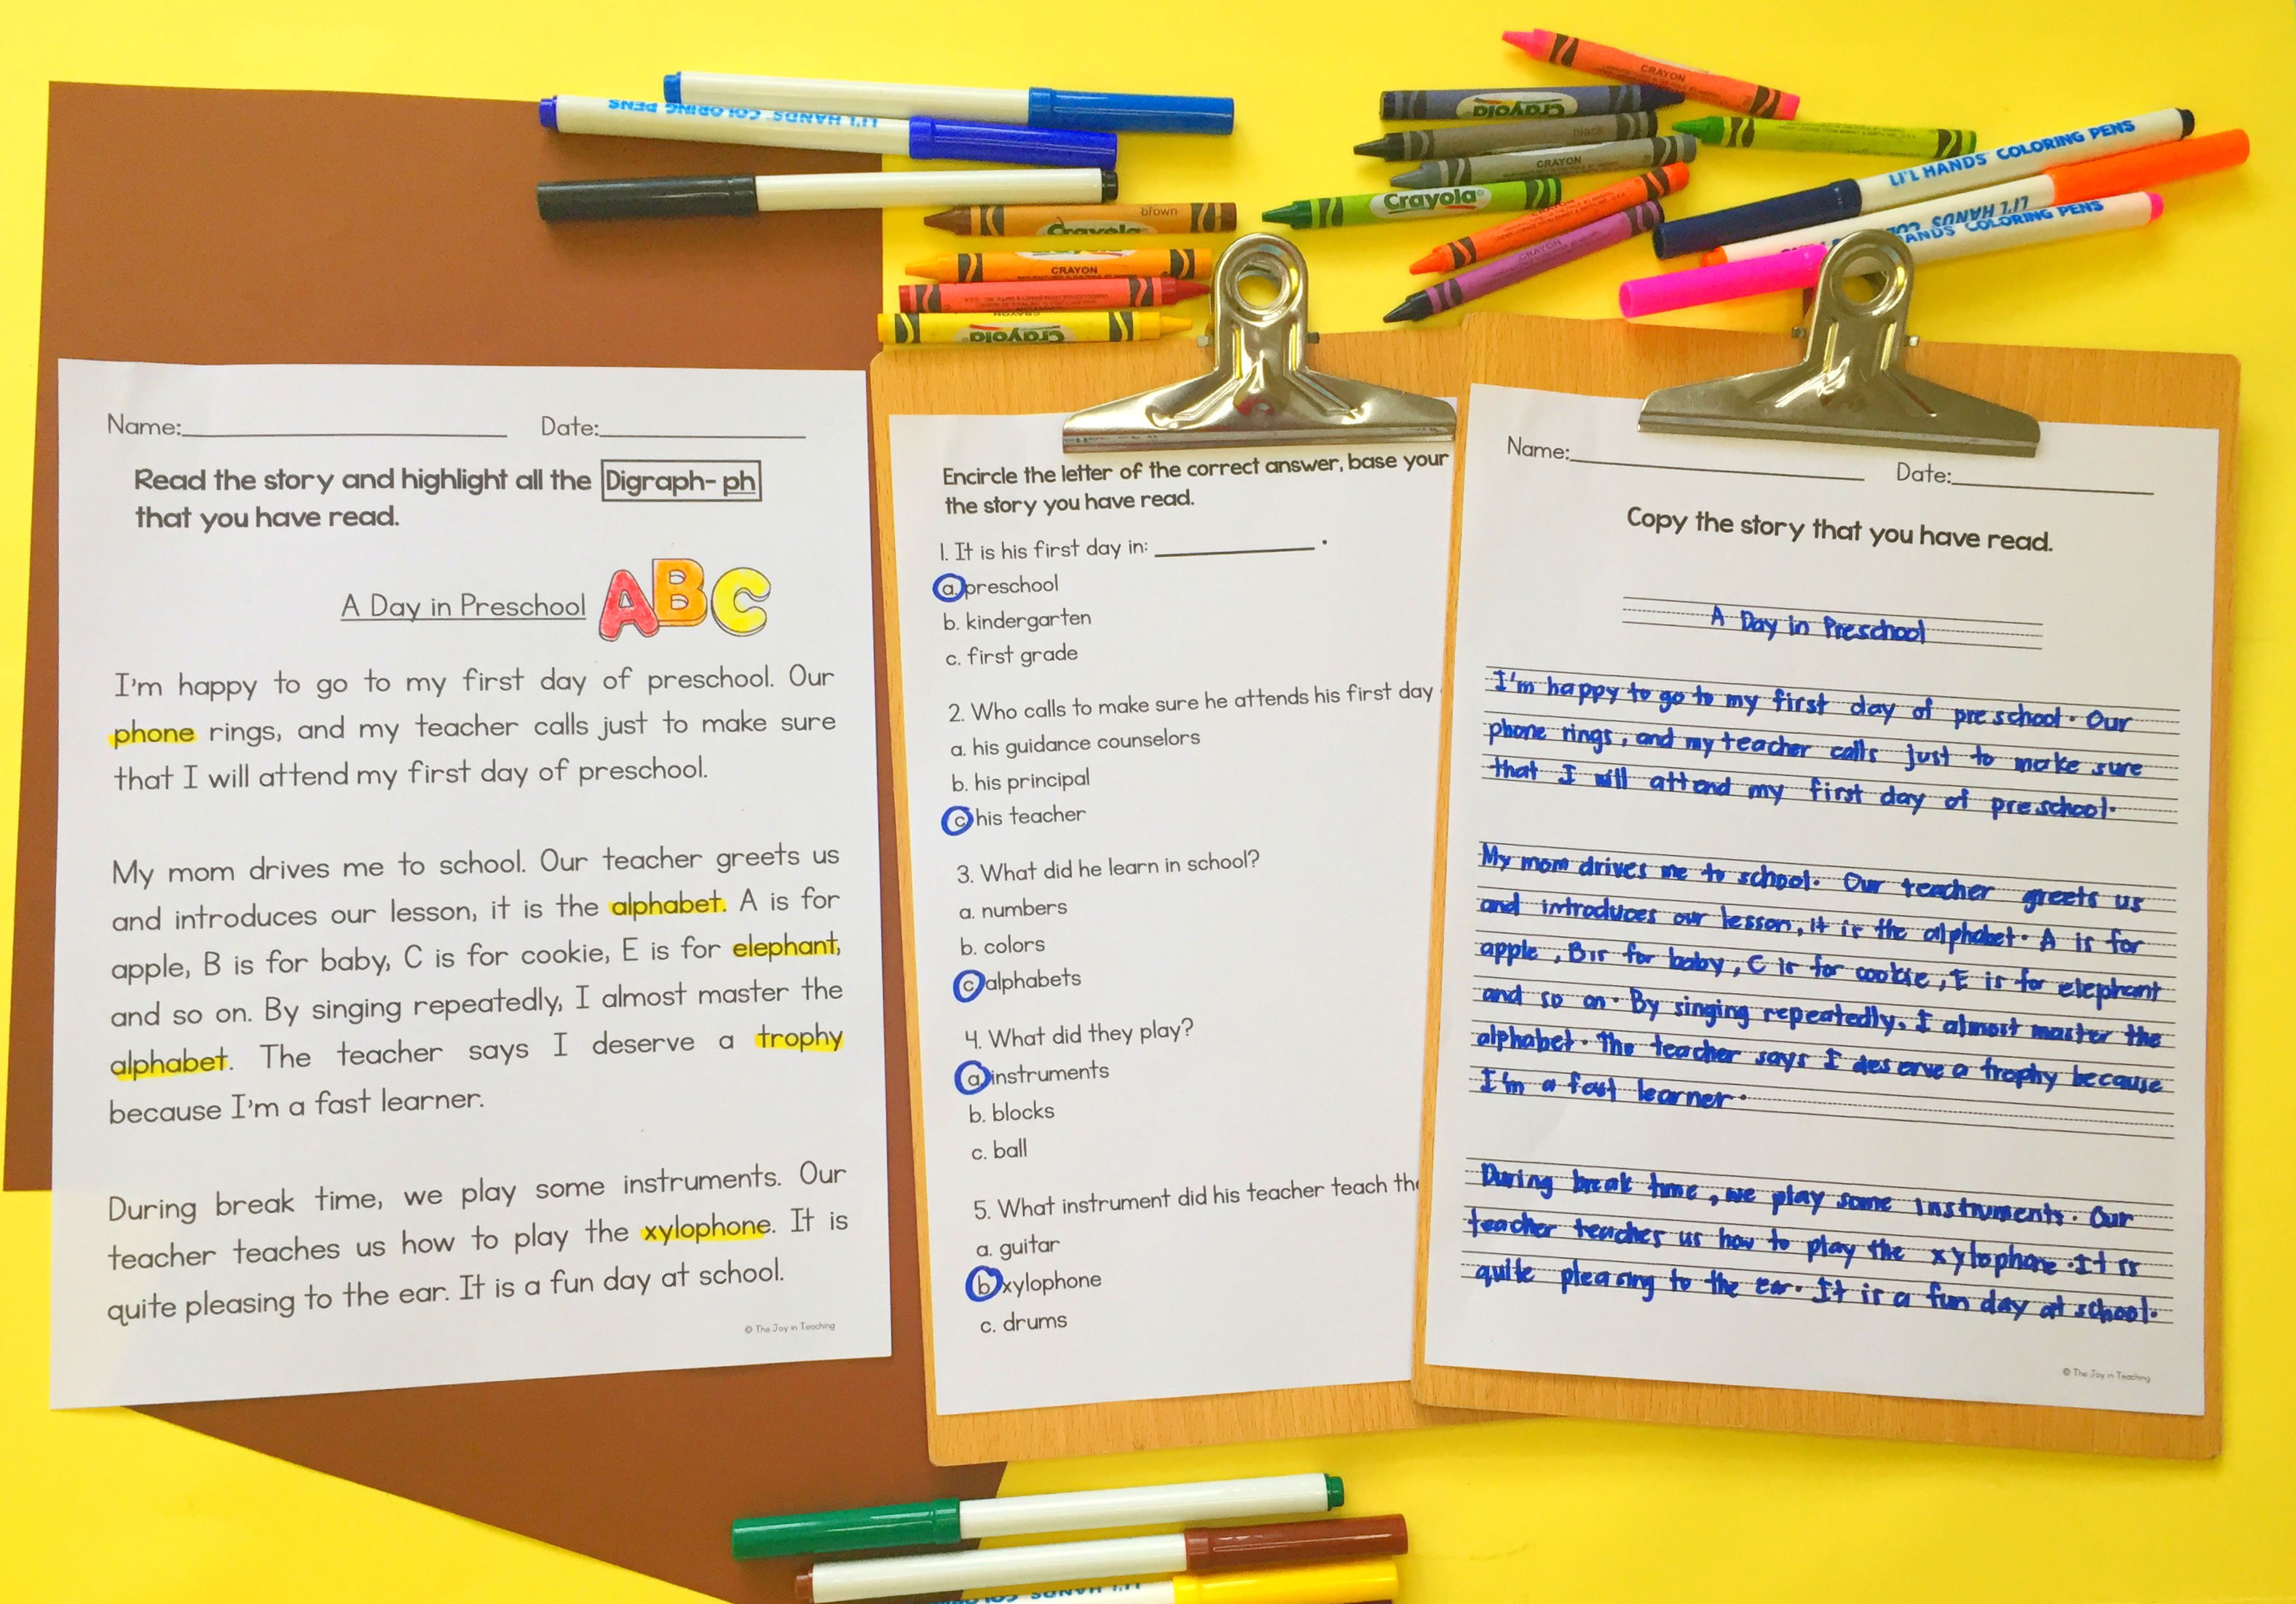 LI'L HANDS COLORING PENS
CRAYON
Crayola
black
CRAYON
Crayola
CRAYON
CRAYON
LI'L HANDS COLORING PENS
LI'L HANDS CO
ANDS COLORING PENS
brown
Crayola
CRAYON
CRAYON
Crayola
Name: Date:
Read the story and highlight all the Digraph- ph
that you have read.
A Day in Preschool ABC
I'm happy to go to my first day of preschool. Our
phone rings, and my teacher calls just to make sure
that I will attend my first day of preschool.
My mom drives me to school. Our teacher greets us
and introduces our lesson, it is the alphabet. A is for
apple, B is for baby, C is for cookie, E is for elephant,
and so on. By singing repeatedly, I almost master the
alphabet. The teacher says I deserve a trophy
because I'm a fast learner.
During break time, we play some instruments. Our
teacher teaches us how to play the xylophone. It is
quite pleasing to the ear. It is a fun day at school.
© The Joy in Teaching
Encircle the letter of the correct answer, base your
the story you have read.
1. It is his first day in: .
a. preschool
b. kindergarten
c. first grade
2. Who calls to make sure he attends his first day
a. his guidance counselors
b. his principal
c his teacher
3. What did he learn in school?
a. numbers
b. colors
c alphabets
4. What did they play?
a instruments
b. blocks
c. ball
5. What instrument did his teacher teach the
a. guitar
b xylophone
c. drums
Name: Date:
Copy the story that you have read.
A Day in Preschool
I'm happy to go to my first day of preschool. Our
phone rings, and my teacher calls just to make sure
that I will attend my first day of preschool.
My mom drives me to school. Our teacher greets us
and introduces our lesson, it is the alphabet. A is for
apple, B is for baby, C is for cookie, E is for elephant
and so on. By singing repeatedly, I almost master the
alphabet. The teacher says I deserve a trophy because
I'm a fast learner.
During break time, we play some instruments. Our
teacher teaches us how to play the xylophone. It is
quite pleasing to the ear. It is a fun day at school.
© The Joy in Teaching
LI'L HANDS COLO